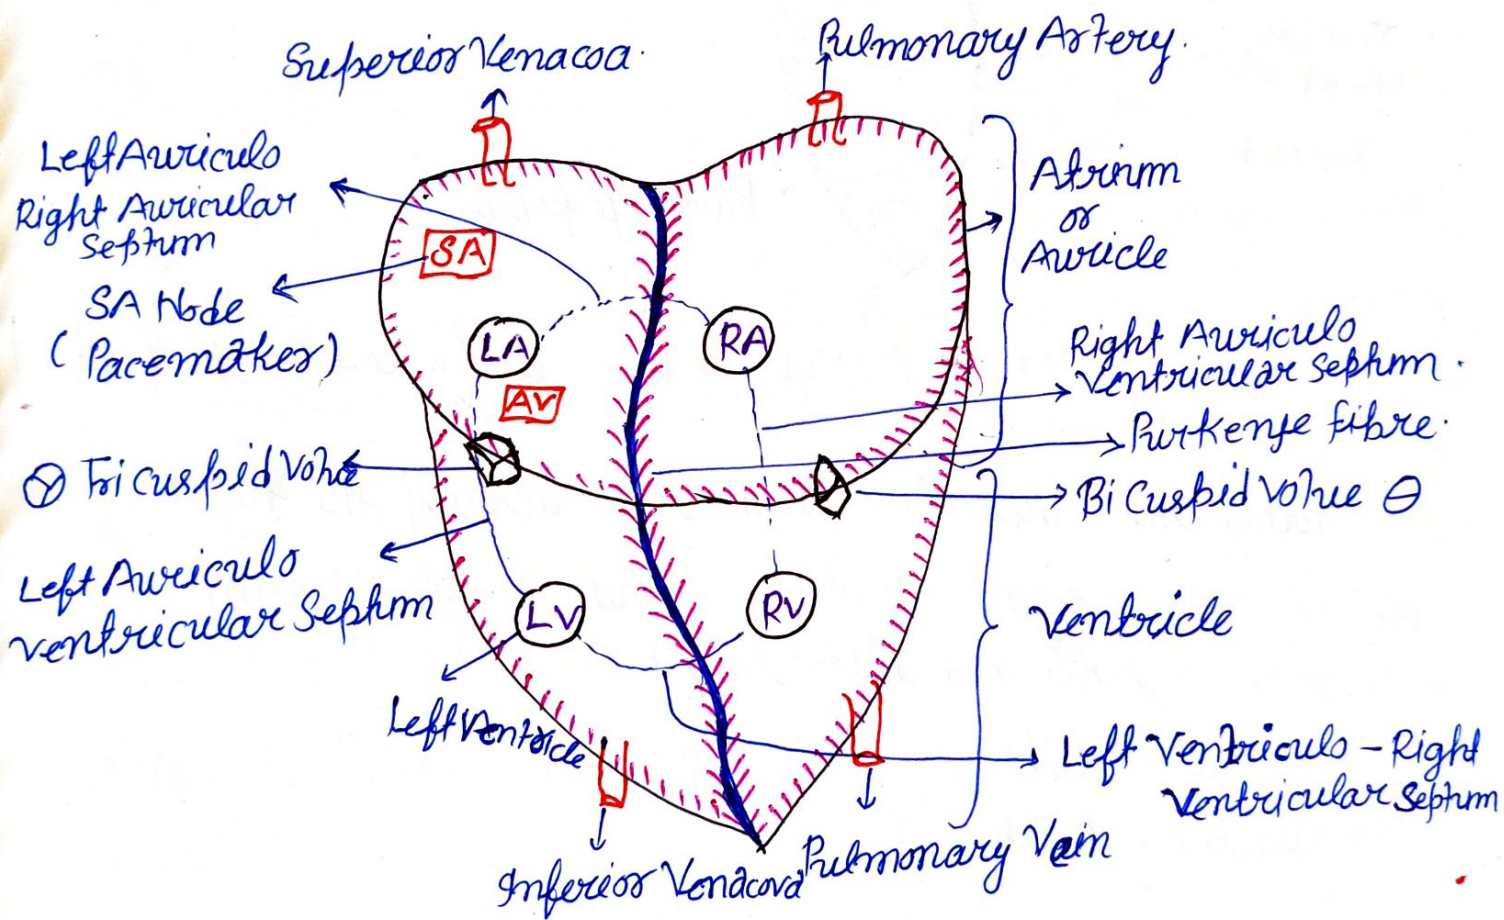 Superior Venacoa.
Pulmonary Artery.
Left Auriculo
Right Auricular
Septum
SA
SA Node
(Pacemaker)
Atrium
or
Auricle
LA
RA
AV
Right Auriculo
Ventricular Septum.
Purkenje fibre.
Tricuspid Volve
Bi Cuspid Volve
Left Auriculo
Ventricular Septum
LV
RV
Ventricle
Left Ventricle
Left Ventriculo - Right
Ventricular Septum
Inferior Venacova
Pulmonary Vein